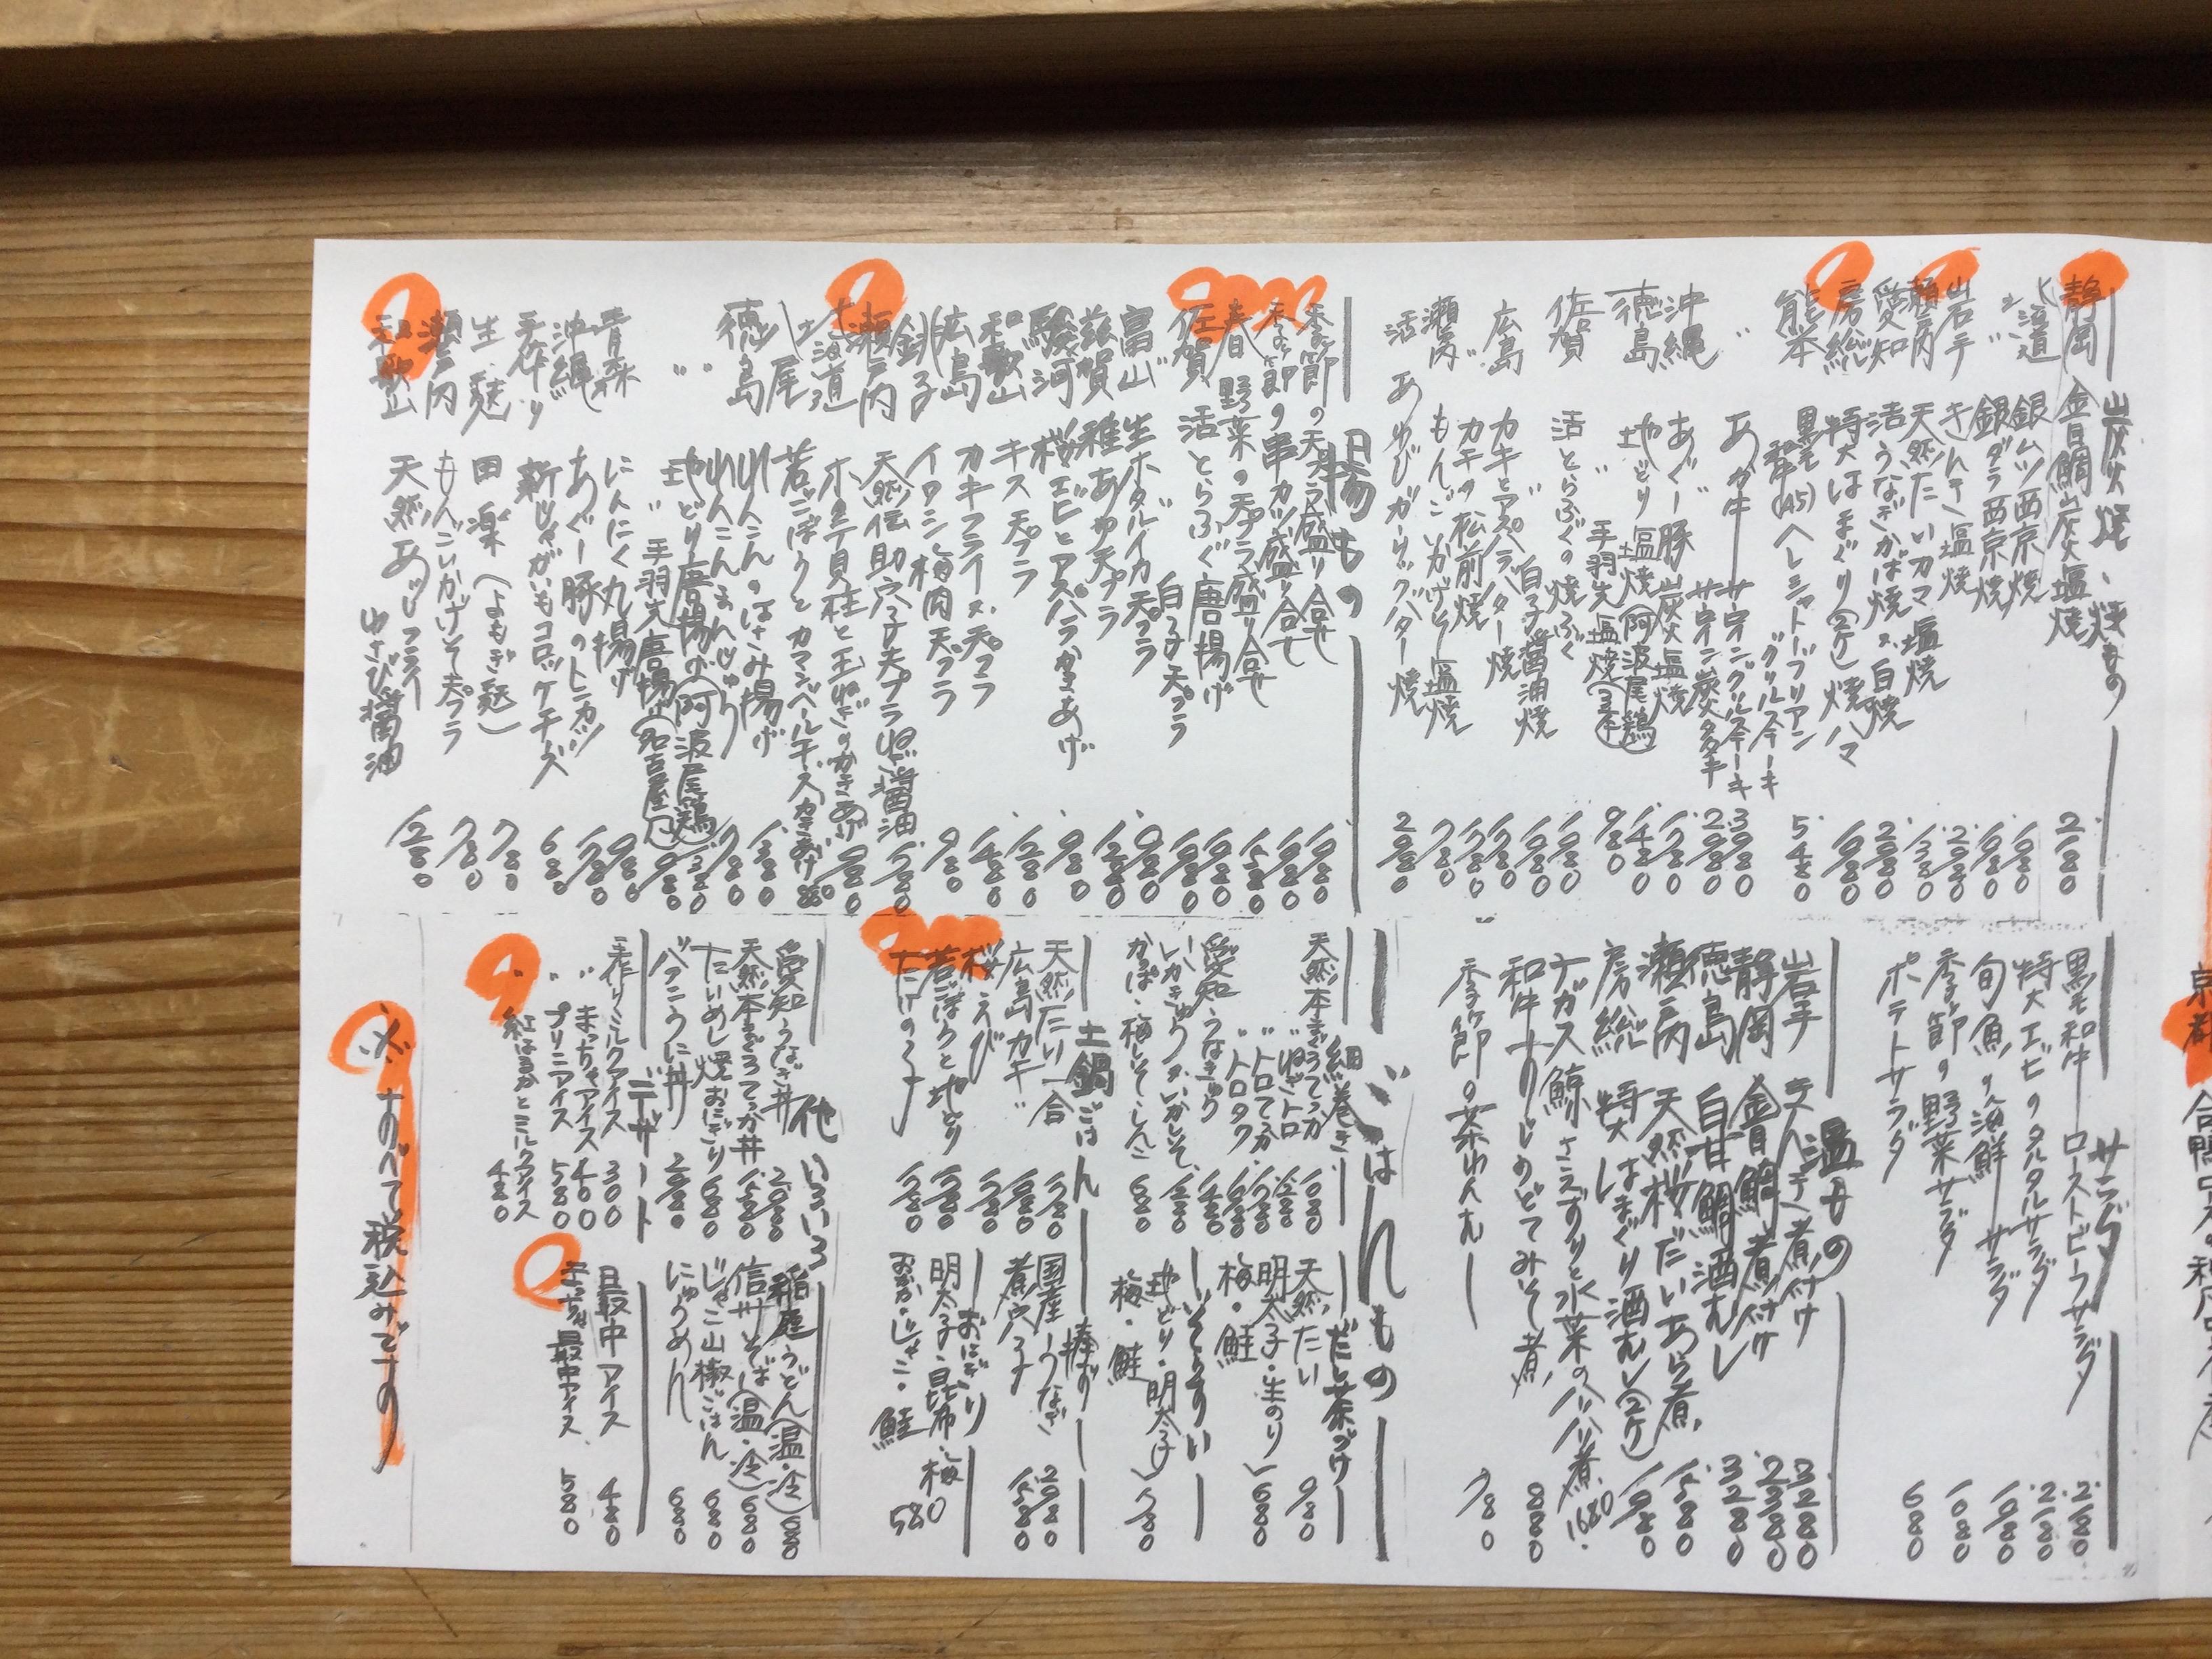 炭火焼、焼もの
静岡 金目鯛炭火塩焼 2180
北海道 銀ムツ西京焼 1080
〃 銀ダラ西京焼 1080
岩手 きんき塩焼 2080
瀬戸内 天然たいカマ塩焼 1380
愛知 活うなぎかば焼、白焼 2080
房総 特大はまぐり(2ケ)焼ハマ 1080
熊本 黒毛和牛(A5)ヘレシャトーブリアン
グリルステーキ 5480
〃 あか牛サーロイングリルステーキ 3980
サーロイン炭タタキ 2980
沖縄 あぐー豚炭火塩焼 1780
徳島 地どり塩焼(阿波尾鶏) 1480
〃 手羽先塩焼(3本) 980
佐賀 活とらふぐの焼ふぐ 1980
〃 白子醤油焼 1980
広島 カキとアスパラバター焼 1780
〃 カキの松前焼 1780
瀬戸内 もんごいかげそ塩焼 780
活あわびガーリックバター焼 2980
揚もの
季節の天プラ盛り合せ 1980
季節の串カツ盛り合せ 1980
春野菜の天プラ盛り合せ 1580
佐賀 活とらふぐ唐揚げ 1980
白子天プラ 1980
富山 生ホタルイカ天プラ 980
滋賀 稚あゆ天プラ 1280
駿河 桜エビとアスパラかきあげ 980
和歌山 キス天プラ 1280
広島 カキフライ、天プラ 1480
銚子 イワシ梅肉天プラ 980
瀬戸内 天然伝助穴子天プラねぎ醤油 1580
北海道 ホタテ貝柱と玉ねぎのかきあげ 980
若ごぼうとカマンベールチーズかきあげ 880
れんこんのはさみ揚げ 1380
れんこんまんじゅう 780
徳島 地どり唐揚げ(阿波尾鶏) 1380
〃 手羽先唐揚げ(名古屋風) 980
青森 にんにく丸揚げ 980
沖縄 あぐー豚のトンカツ 1780
手作り 新じゃがいもコロッケチーズ 680
生麩 田楽(よもぎ麩) 780
瀬戸内 もんごいかげそ天プラ 780
和歌山 天然あじフライ
わさび醤油 1280
サラダ
黒毛和牛ローストビーフサラダ 2180
特大エビのタルタルサラダ 2180
旬魚の海鮮サラダ 1080
季節の野菜サラダ 1080
ポテトサラダ 680
温もの
岩手 きんき煮付け 3280
静岡 金目鯛煮付け 2380
徳島 白甘鯛酒むし 3280
瀬戸内 天然桜だいあら煮 1580
房総 特大はまぐり酒むし(2ケ) 1080
ナガス鯨さえずりと水菜のハリハリ煮 1680
和牛すじのどてみそ煮 880
季節の茶わんむし 780
ごはんもの
細巻き
天然本まぐろてっか 1080
〃 ねぎトロ 1280
〃 トロてっか 1780
〃 トロタク 1080
愛知 うなきゅう 1480
いかきゅう・いかしそ 1280
かっぱ・梅しそ・しんこ 680
だし茶づけ
天然たい 980
明太子・生のり
梅・鮭 680
ぞうすい
地どり・明太子
梅・鮭 780
土鍋ごはん
天然たい一合 1780
広島カキ 1980
桜えび 1780
若ごぼうと地どり 1780
たけのこ 1780
棒ずし
国産うなぎ 2980
煮穴子 1580
おにぎり
明太子・昆布・梅
おかか・じゃこ・鮭 580
他いろいろ
愛知うなぎ丼 2980
天然本まぐろてっか丼 1580
たいめし焼おにぎり 680
バフンうに丼 2980
稲庭うどん(温・冷) 680
信州そば(温・冷) 680
じゃこ山椒ごはん 680
にゅうめん 680
デザート
手作りミルクアイス 300
〃 まっちゃアイス 400
〃 プリンアイス 580
紅はるかとミルクアイス 480
最中アイス 480
まっちゃ最中アイス 580
※すべて税込みです。
京都